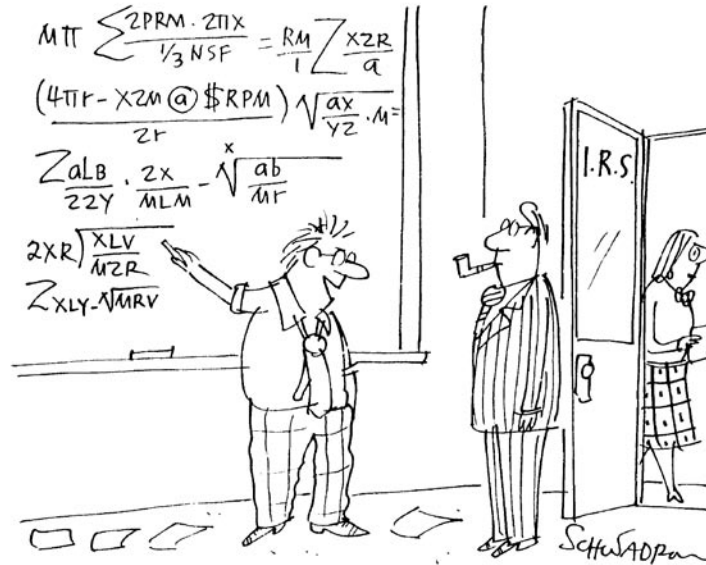 Mπ Σ 2PRM · 2πX / ⅓ NSF = RM / 1 Z XZR / a
(4πr - XZM @ $RPM) / 2r √ aX / YZ · M =
Z aLB / 22Y · 2X / MLM - ˣ√ ab / Mr
2XR ) XLV / MZR
Z XLY - √MRV
I.R.S.
SCHWADRON